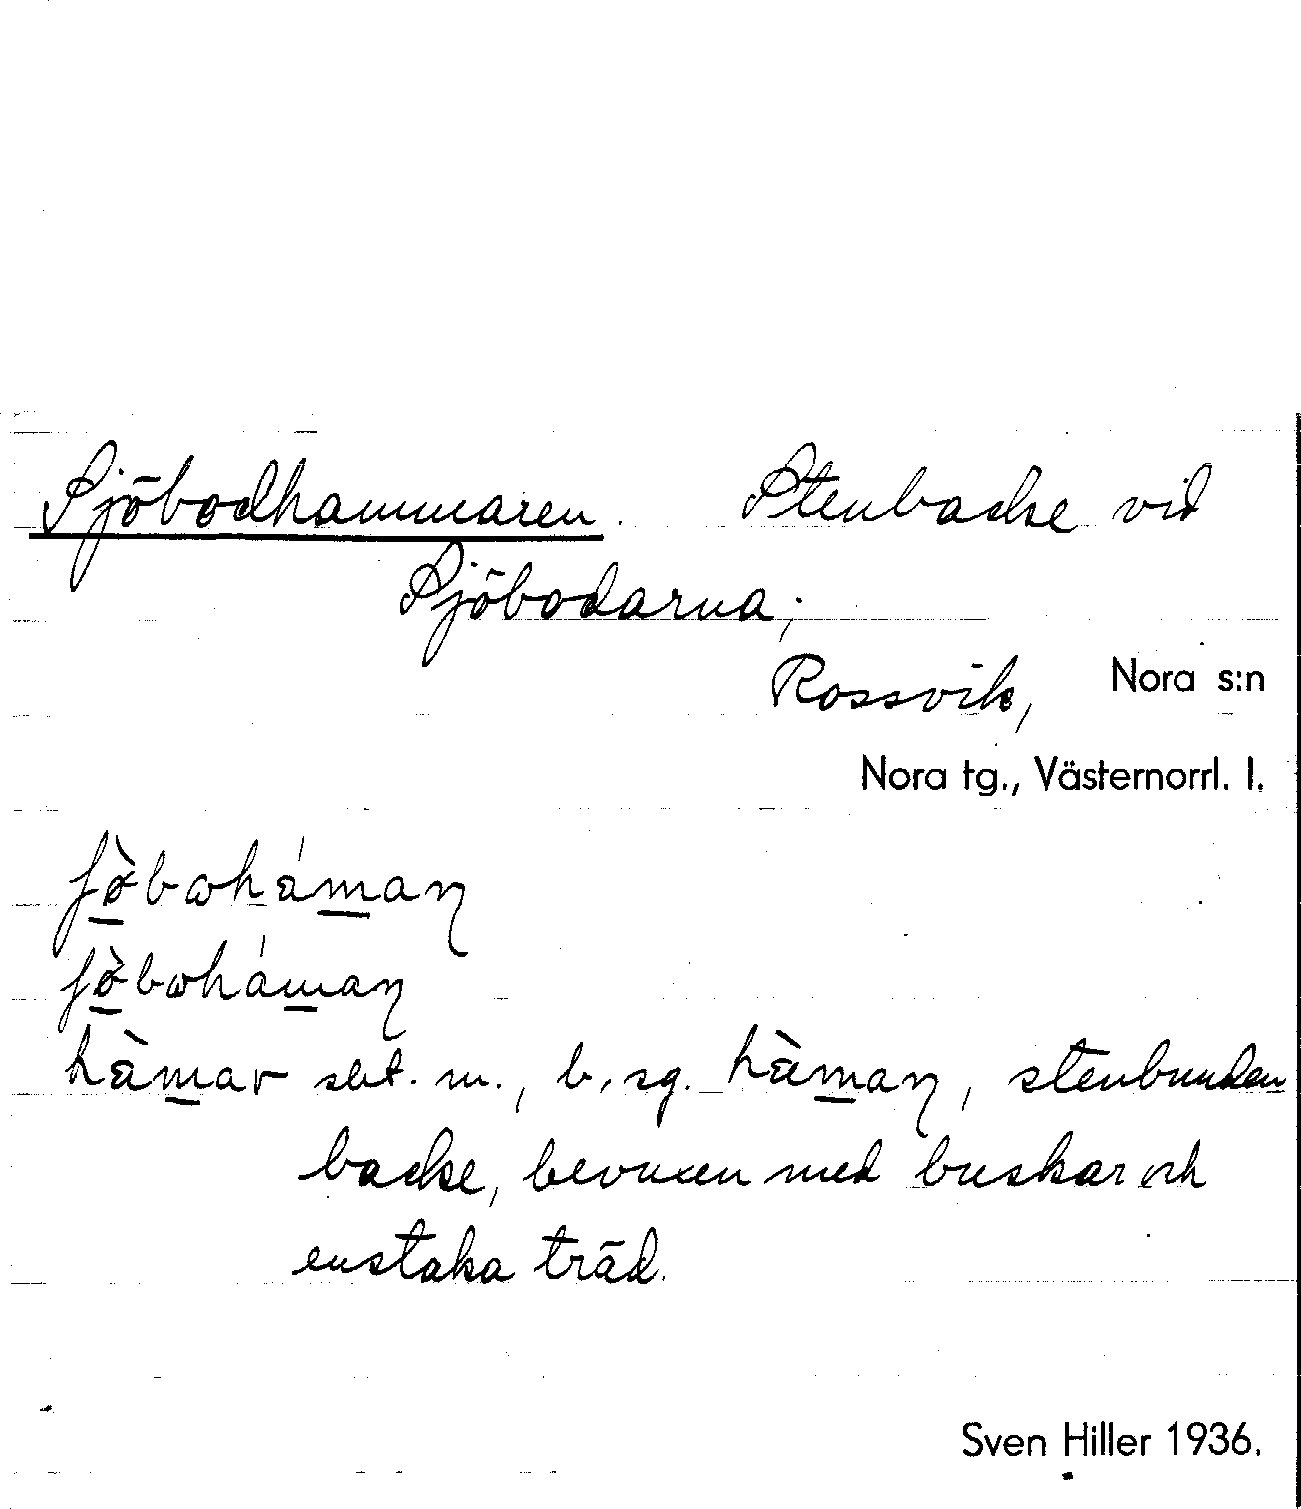 Sjöbodhammaren. Stenbacke vid
Sjöbodarna;
Rossvik, Nora s:n
Nora tg., Västernorrl. l.
ʃö̀bωháman̡
ʃö̀bωháman̡
hàmar sbt. m., b. sg. hàman̡, stenbunden
backe, bevuxen med buskar och
enstaka träd.
Sven Hiller 1936.